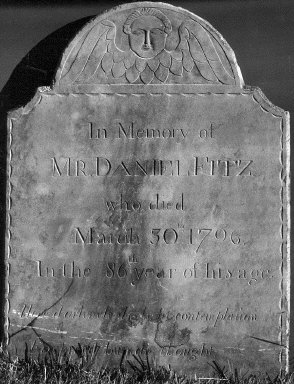 In Memory of
MR. DANIEL FITZ
who died
March 30th 1796
In the 86th year of his age.
contemplation
thought